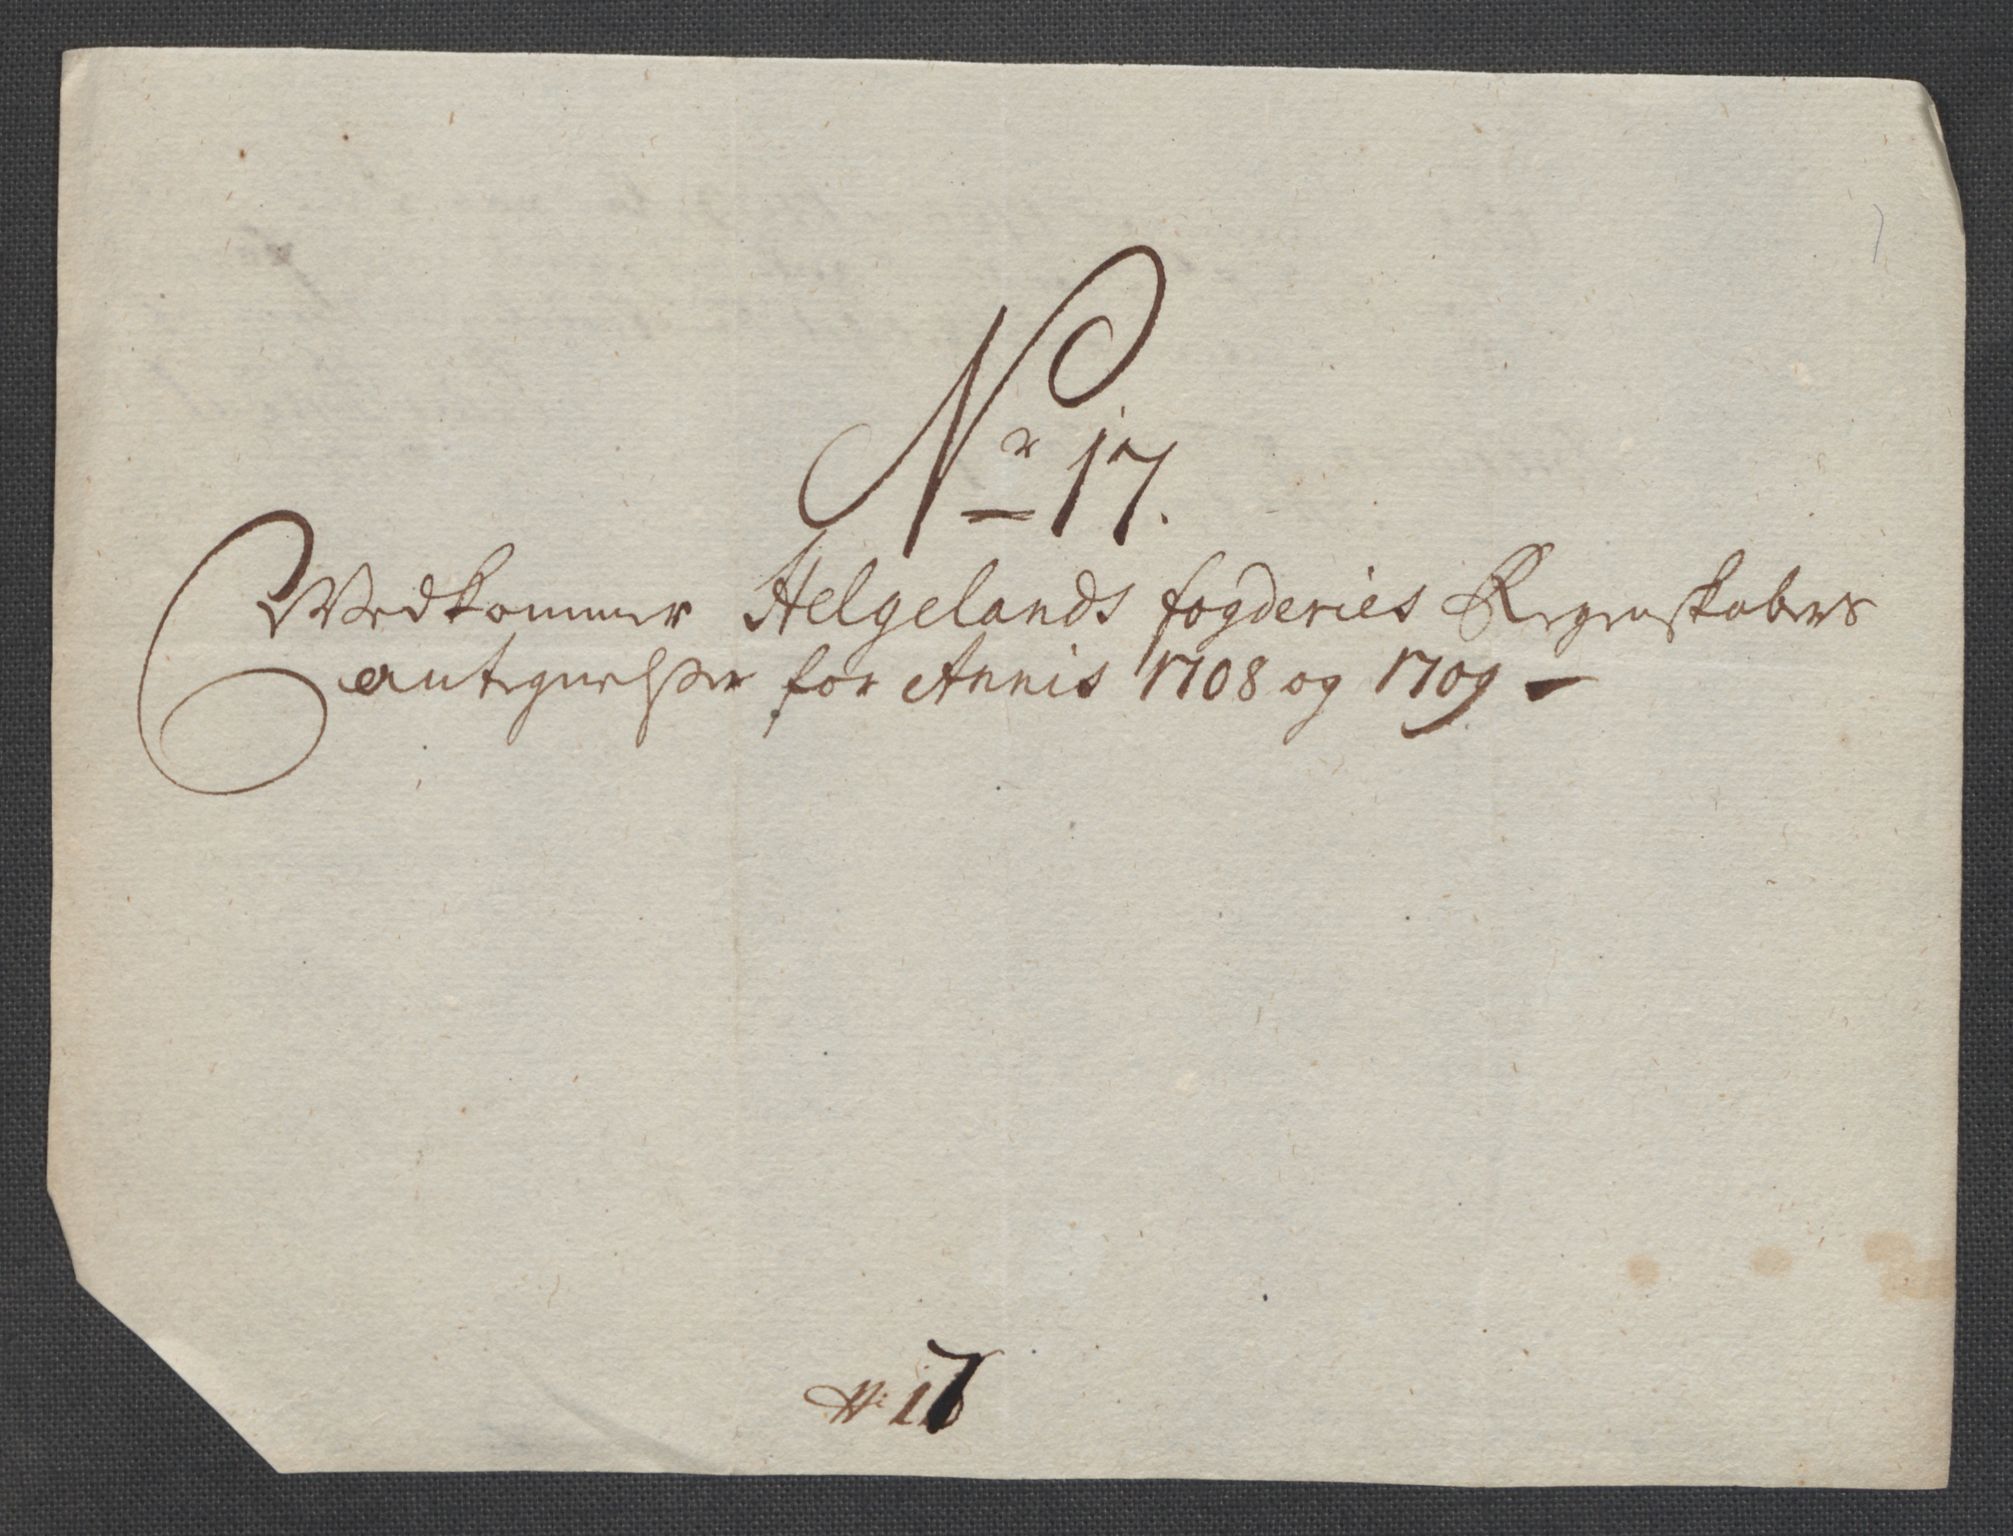 Nr 17.
Wedkommer Helgelands fogderies Regenskabers
antegnelßer for Annis 1708 og 1709 –
N: 17